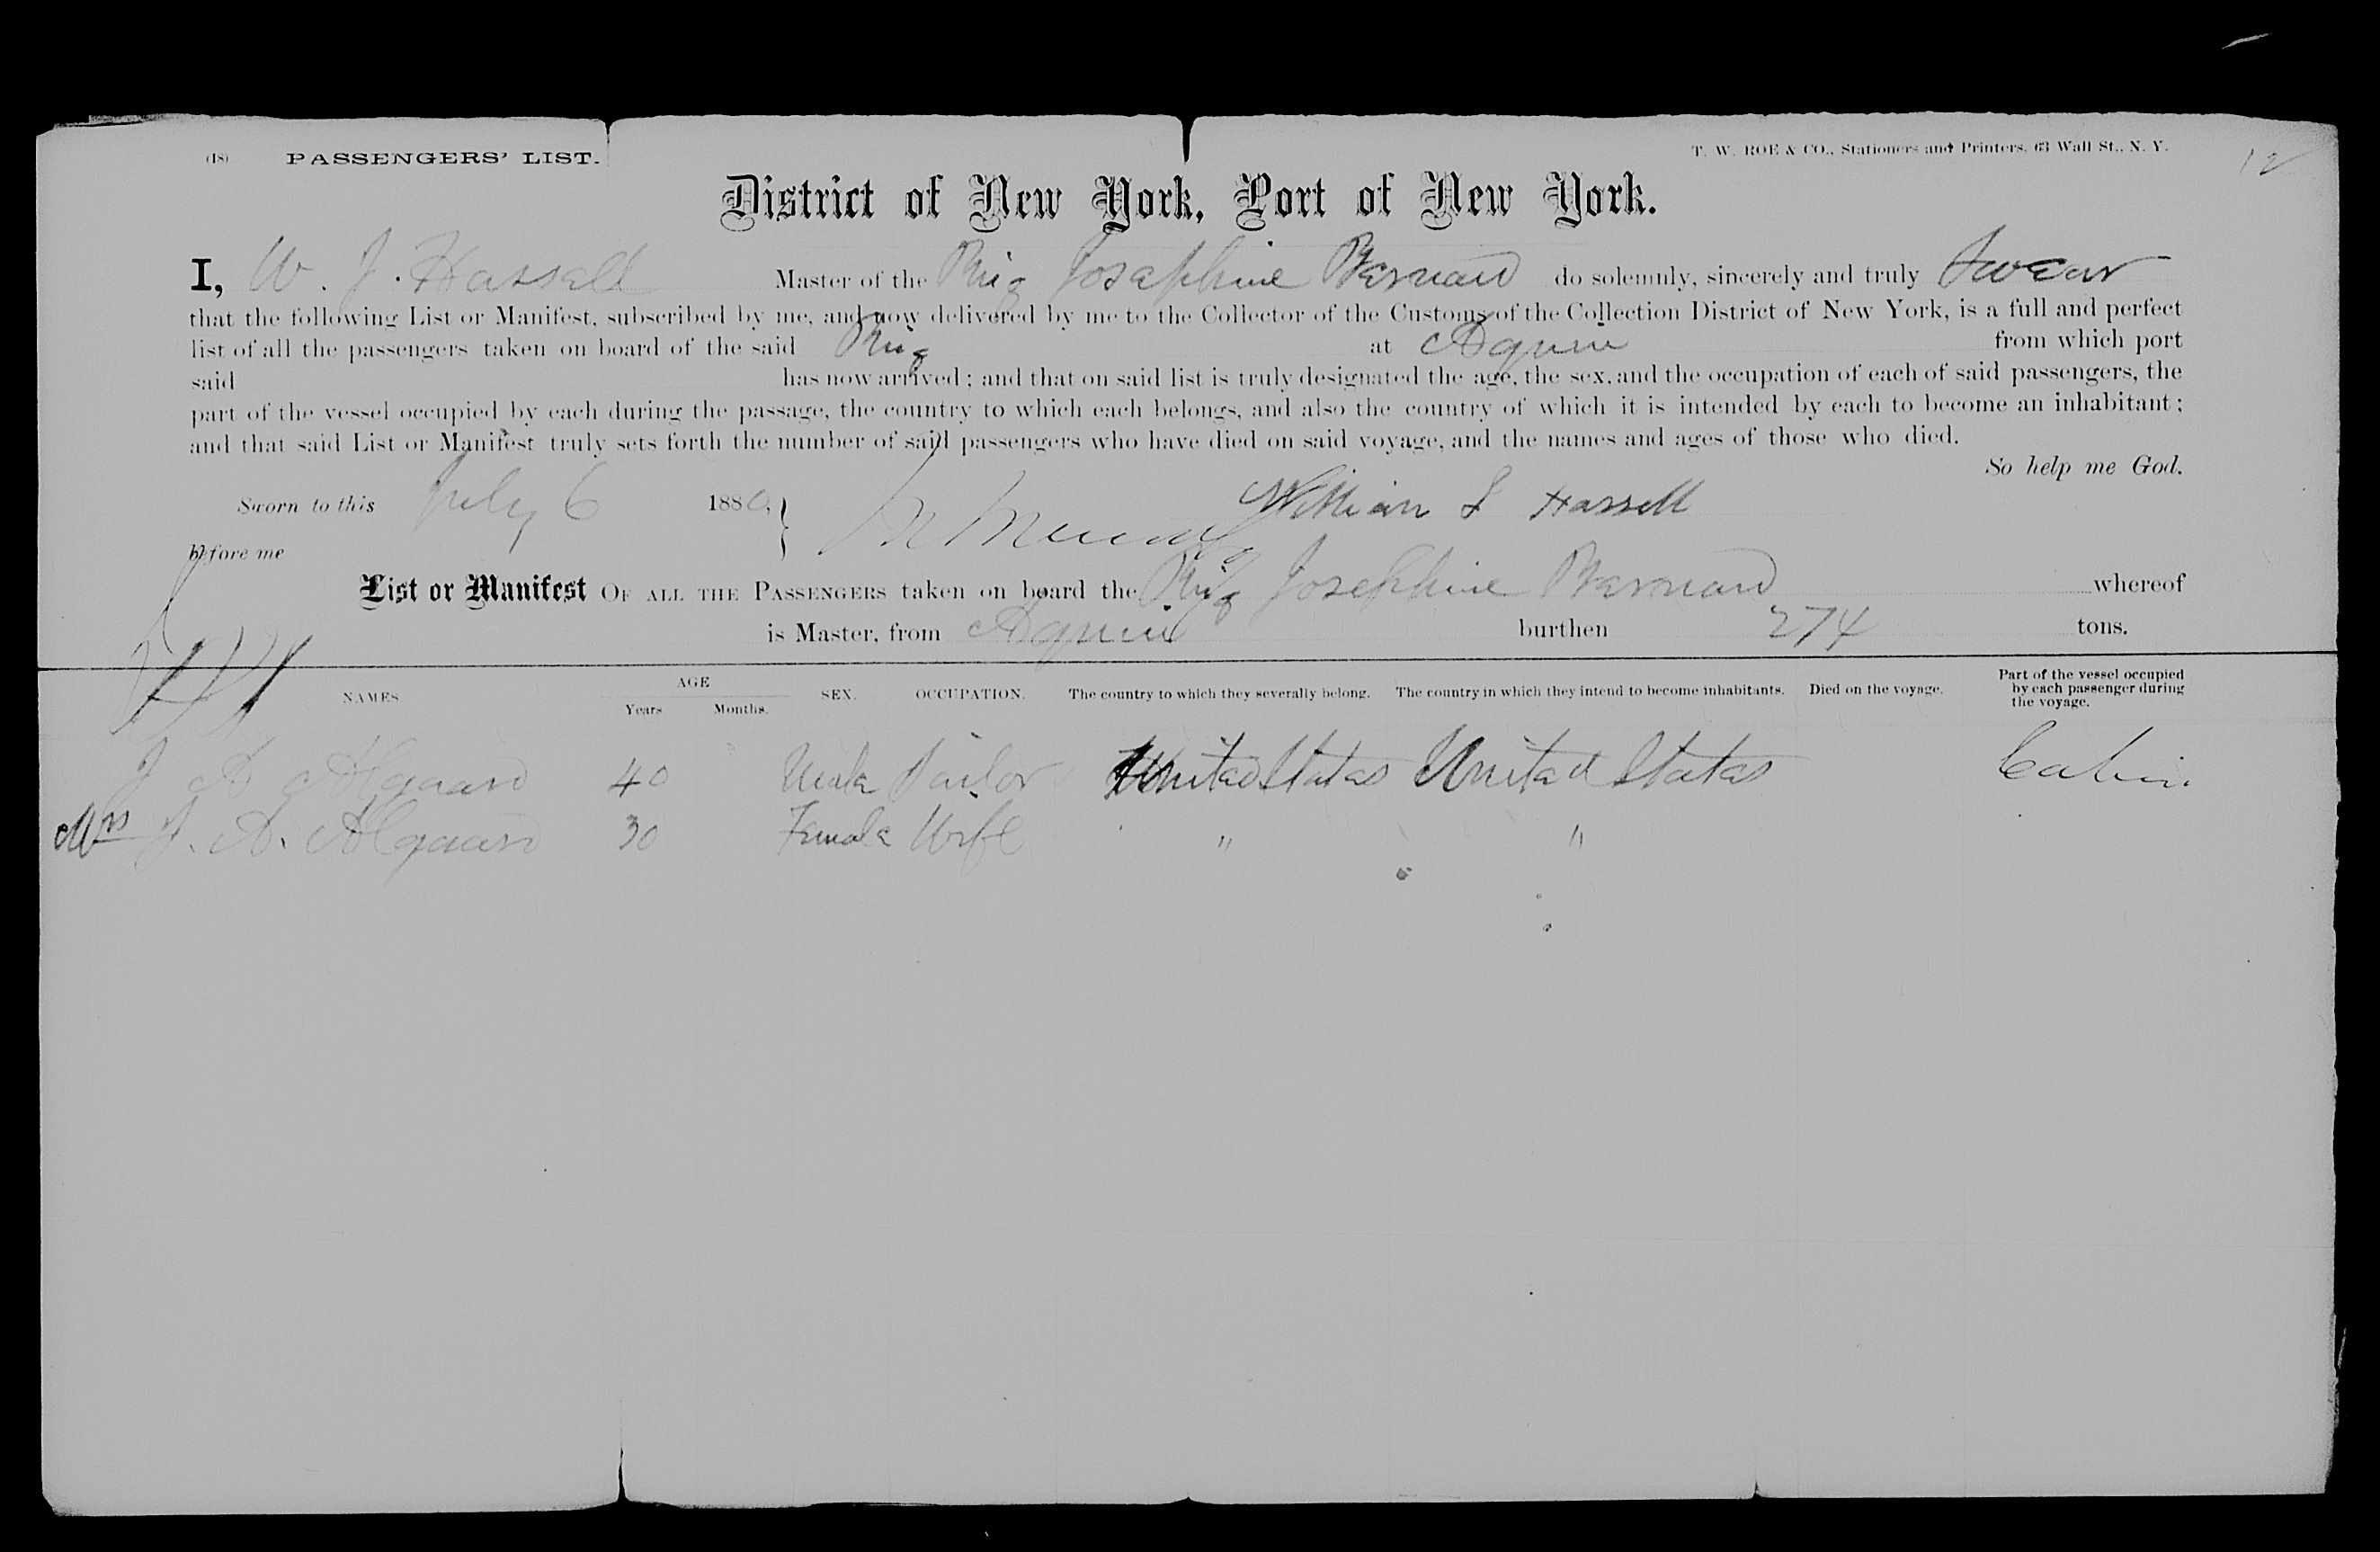 (18) PASSENGERS' LIST. T. W. ROE & CO., Stationers and Printers, 63 Wall St., N. Y. 12
District of New York, Port of New York.
I, W. J. Hassell Master of the Brig Josephine Barnard do solemnly, sincerely and truly swear
that the following List or Manifest, subscribed by me, and now delivered by me to the Collector of the Customs of the Collection District of New York, is a full and perfect
list of all the passengers taken on board of the said Brig at Aquin from which port
said has now arrived; and that on said list is truly designated the age, the sex, and the occupation of each of said passengers, the
part of the vessel occupied by each during the passage, the country to which each belongs, and also the country of which it is intended by each to become an inhabitant;
and that said List or Manifest truly sets forth the number of said passengers who have died on said voyage, and the names and ages of those who died.
So help me God.
Sworn to this July 6 1880, William J Hassell
before me
List or Manifest OF ALL THE PASSENGERS taken on board the Brig Josephine Barnard whereof
is Master, from Aquin burthen 274 tons.
NAMES AGE Years Months. SEX. OCCUPATION. The country to which they severally belong. The country in which they intend to become inhabitants. Died on the voyage. Part of the vessel occupied by each passenger during the voyage.
J A Algaard 40 Male Sailor United States United States Cabin.
Mrs J. A. Algaard 30 Female Wife " "